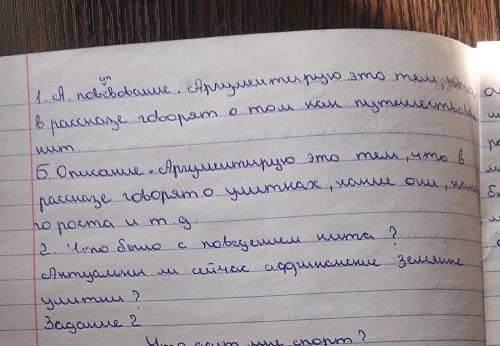 1. А. повевование. Аргументирую это тем, что
в рассказе говорят о том как путешествовал
кит.
Б. Описание. Аргументирую это тем, что в
рассказе говорят о улитках, какие они, како
го роста и т.д.
2. Что было с поведением кита?
Актуальны ли сейчас африканские Земляные
улитки?
Задание 2
Что даёт мне спорт?